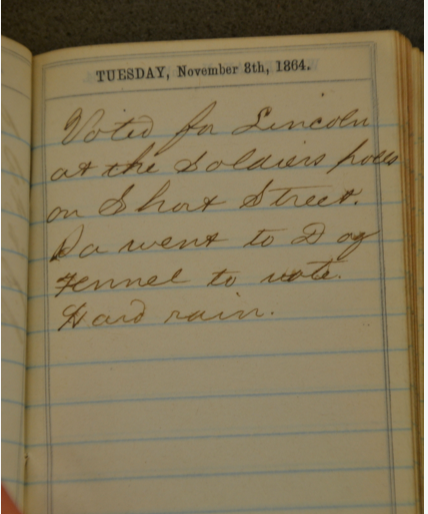 TUESDAY, November 8th, 1864.
Voted for Lincoln
at the Soldiers polls
on Short Street.
Pa went to Dog
Fennel to vote.
Hard rain.